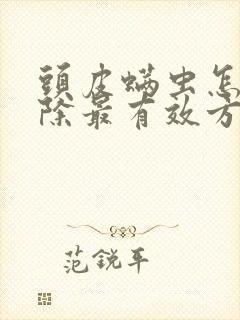 頭皮螨虫怎
除最有效方
范銳平